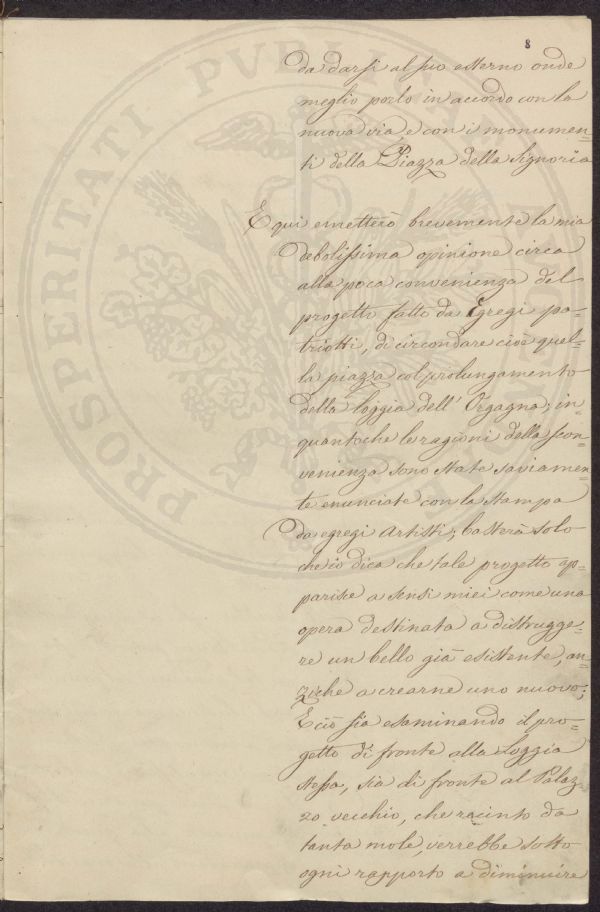 8
da darsi al suo esterno onde
meglio porlo in accordo con la
nuova via e con i monumen=
ti della Piazza della Signoria
E qui emetterò brevemente la mia
debolissima opinione circa
alla poca convenienza del
progetto fatto da Egregi pa=
triotti, di circondare cioè quel=
la piazza col prolungamento
della loggia dell' Orgagna; in=
quantoche le ragioni della scon=
venienza sono state saviamen=
te enunciate con la stampa
da egregi Artisti; basterà solo
che io dica che tale progetto ap=
parisce a sensi miei come una
opera destinata a distrugge=
re un bello già esistente, an=
ziche a crearne uno nuovo;
E ciò sia esaminando il pro=
getto di fronte alla Loggia
stessa, sia di fronte al Palaz=
zo vecchio, che recinto da
tanta mole, verrebbe sotto
ogni rapporto a diminuire
PROSPERITATI PVBLICAE